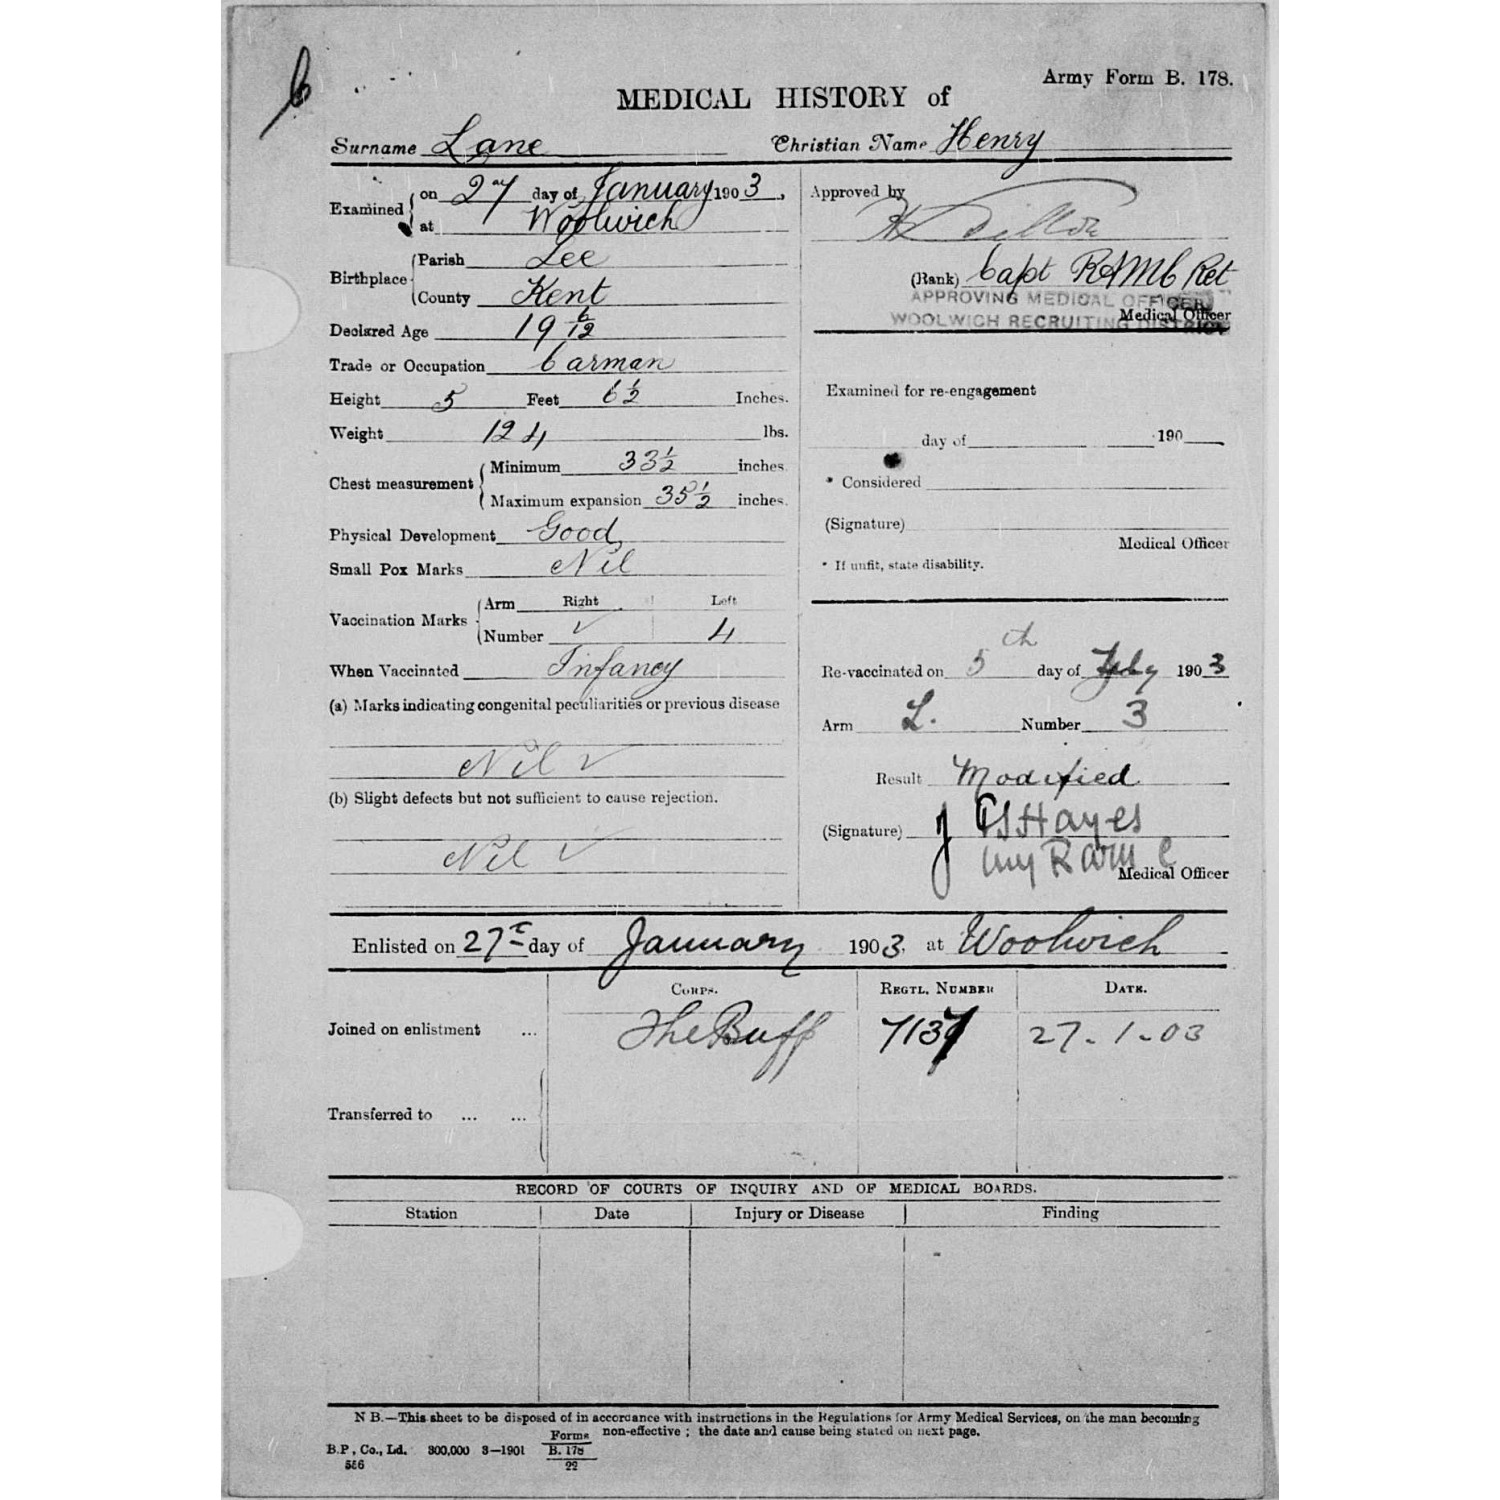 Army Form B. 178.
MEDICAL HISTORY of
Surname Lane Christian Name Henry
Examined on 27 day of January 1903,
at Woolwich
Birthplace Parish Lee
County Kent
Declared Age 19 6/12
Trade or Occupation Carman
Height 5 Feet 6½ Inches.
Weight 124 lbs.
Chest measurement Minimum 33½ inches
Maximum expansion 35½ inches.
Physical Development Good
Small Pox Marks Nil
Vaccination Marks Arm Right Left
Number ✓ 4
When Vaccinated Infancy
(a) Marks indicating congenital peculiarities or previous disease
Nil ✓
(b) Slight defects but not sufficient to cause rejection.
Nil ✓
Approved by
Dillon
(Rank) Capt RAMC Ret
APPROVING MEDICAL OFFICER
Medical Officer
WOOLWICH RECRUITING DISTRICT
Examined for re-engagement
day of 190
* Considered
(Signature)
Medical Officer
* If unfit, state disability.
Re-vaccinated on 5th day of Feby 1903
Arm L. Number 3
Result Modified
(Signature) J Hayes
RAMC
Medical Officer
Enlisted on 27 day of January 1903, at Woolwich
Corps. Regtl. Number Date.
Joined on enlistment ... The Buffs 7137 27-1-03
Transferred to ... ...
RECORD OF COURTS OF INQUIRY AND OF MEDICAL BOARDS.
Station Date Injury or Disease Finding
N B.—This sheet to be disposed of in accordance with instructions in the Regulations for Army Medical Services, on the man becoming
non-effective; the date and cause being stated on next page.
B.P, Co., Ld. 300,000 3—1901 Forms
B. 178
22
556